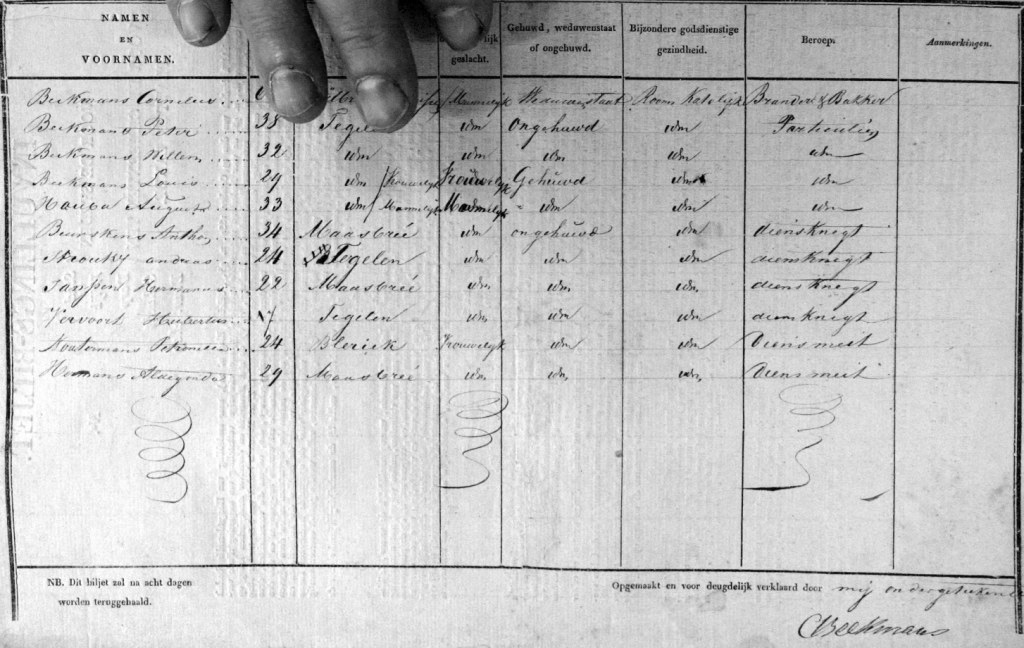 NAMEN EN VOORNAMEN. lijk geslacht. Gehuwd, weduwenstaat of ongehuwd. Bijzondere godsdienstige gezindheid. Beroep. Aanmerkingen.
Beekmans Cornelius Mannelijk Weduwenstaat Room Katolijk Brander & Bakker
Beekmans Peter 38 Tegelen idm ongehuwd idm Particulier
Beekmans Willem 32 idm idm idm idm idm
Beekmans Louis 29 idm Vrouwelyk Vrouwelyk Gehuwd idm idm
August 33 idm Mannelyk Mannelyk idm idm idm
Beurskens Anthon 34 Maasbreé idm ongehuwd idm diensknegt
andreas 24 Tegelen idm idm idm diensknegt
Janssen Hermanus 22 Maasbreé idm idm idm diensknegt
Vervoort Hubertus Tegelen idm idm idm diensknegt
Petronella 24 Blerick Vrouwelyk idm idm Diensmeit
Aldegonda 29 Maasbreé idm idm idm Diensmeit
NB. Dit biljet zal na acht dagen
worden teruggehaald.
Opgemaakt en voor deugdelijk verklaard door mij ondergetekende
CBeekmans